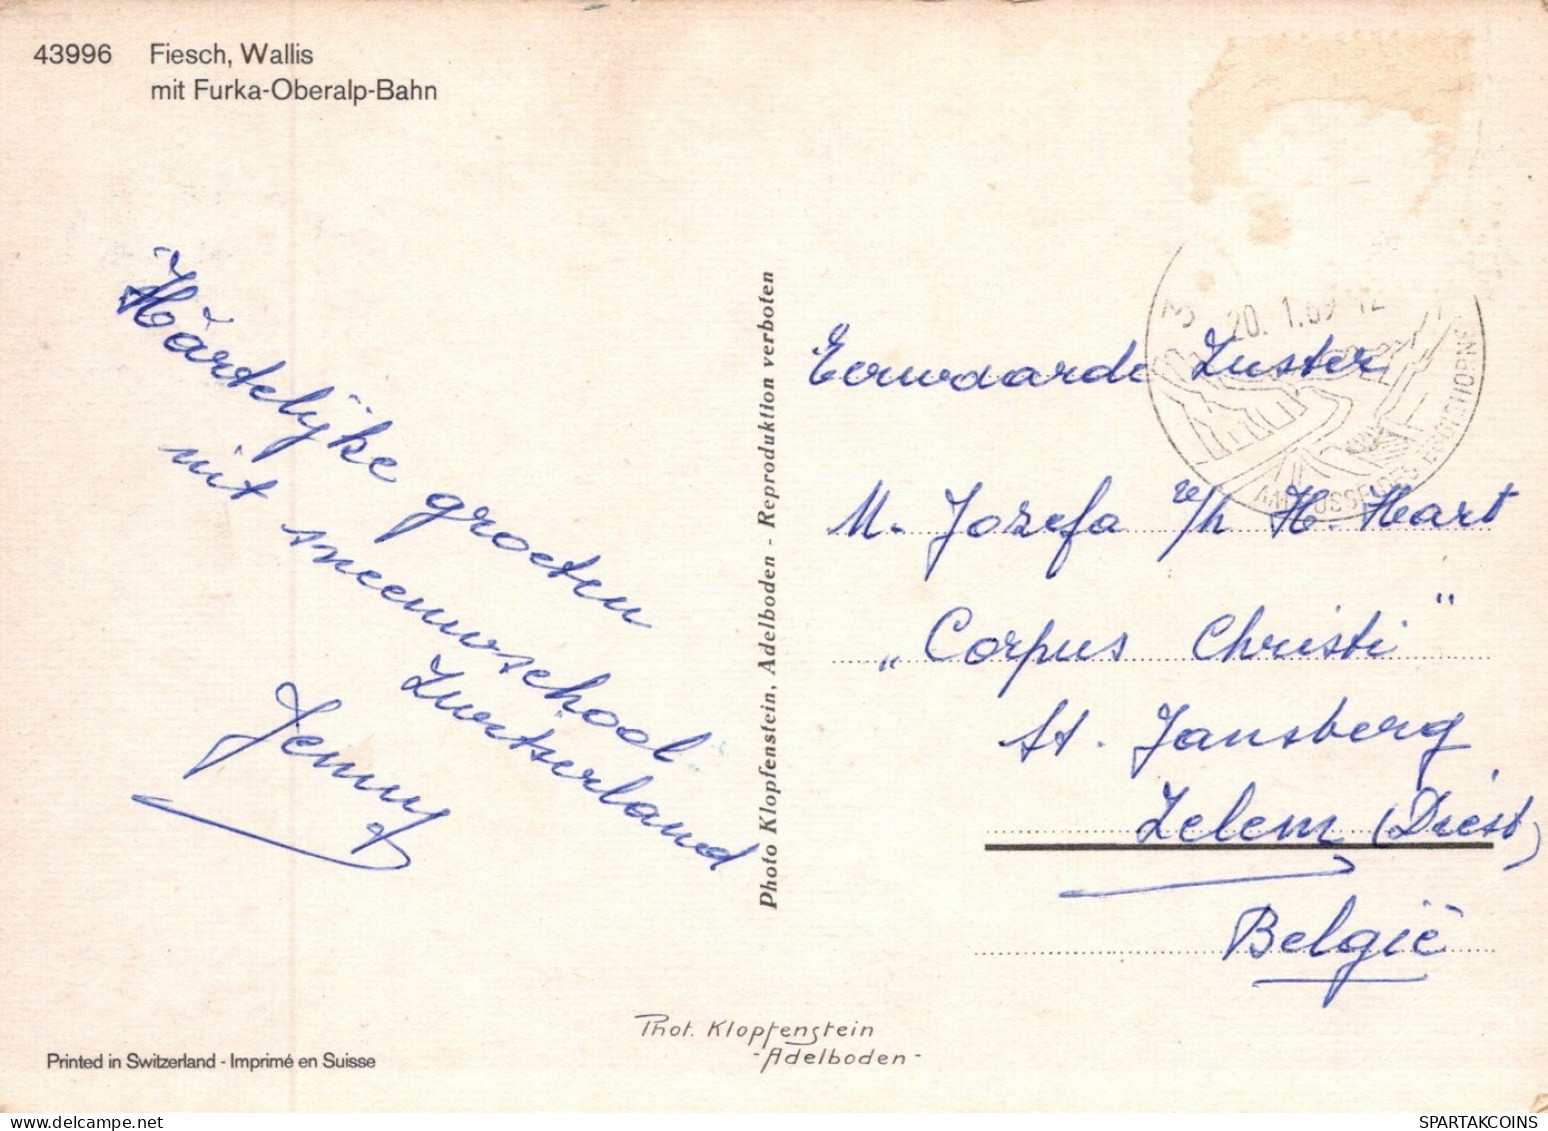 43996 Fiesch, Wallis
mit Furka-Oberalp-Bahn
Hartelijke groeten
uit sneeuwschool
Zwitserland
Jenny
Photo Klopfenstein, Adelboden - Reproduktion verboten
20. 1.69 12
AM FUSSE DES EGGISHORNS
Eerwaarde Zuster
M. Jozefa v/h H. Hart
„Corpus Christi"
St. Jansberg
Zelem (Diest)
België
Phot. Klopfenstein
- Adelboden -
Printed in Switzerland - Imprimé en Suisse
SPARTAKCOINS